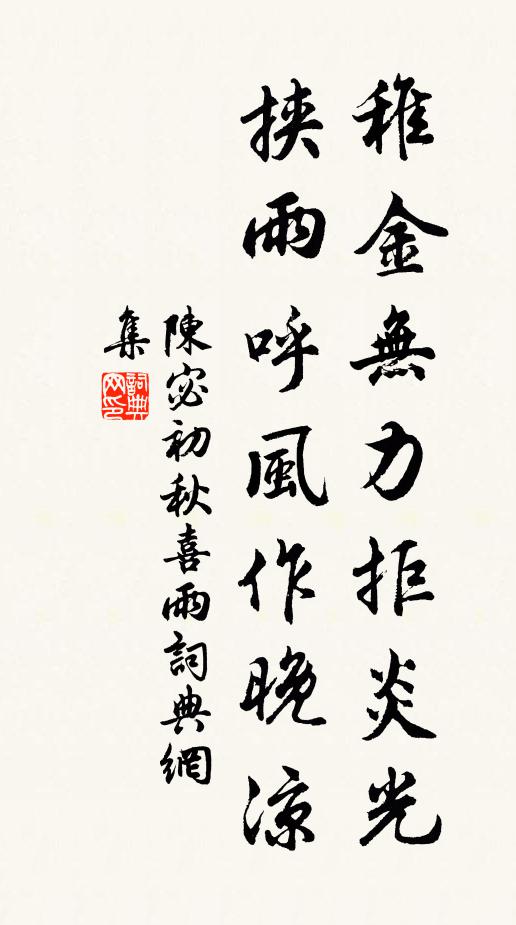 稚金無力拒炎光
挾雨呼風作晚涼
陳宓初秋喜雨詞典網
集
詞典
网印